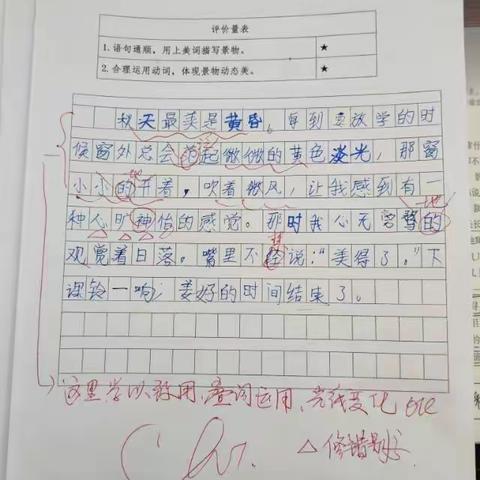 评价量表
1.语句通顺，用上美词描写景物。 ★
2.合理运用动词，体现景物动态美。 ★
秋天最美是黄昏。每到要放学的时
候窗外总会起微微的黄色淡光，那窗
小小的开着，吹着微风，让我感到有一
种心旷神怡的感觉。那时我心无旁骛的
观觉着日落。嘴里不经说:“美得了。”下
课铃一响，美好的时间结束了。
这里学以致用，叠词运用，光线变化
△修错别字